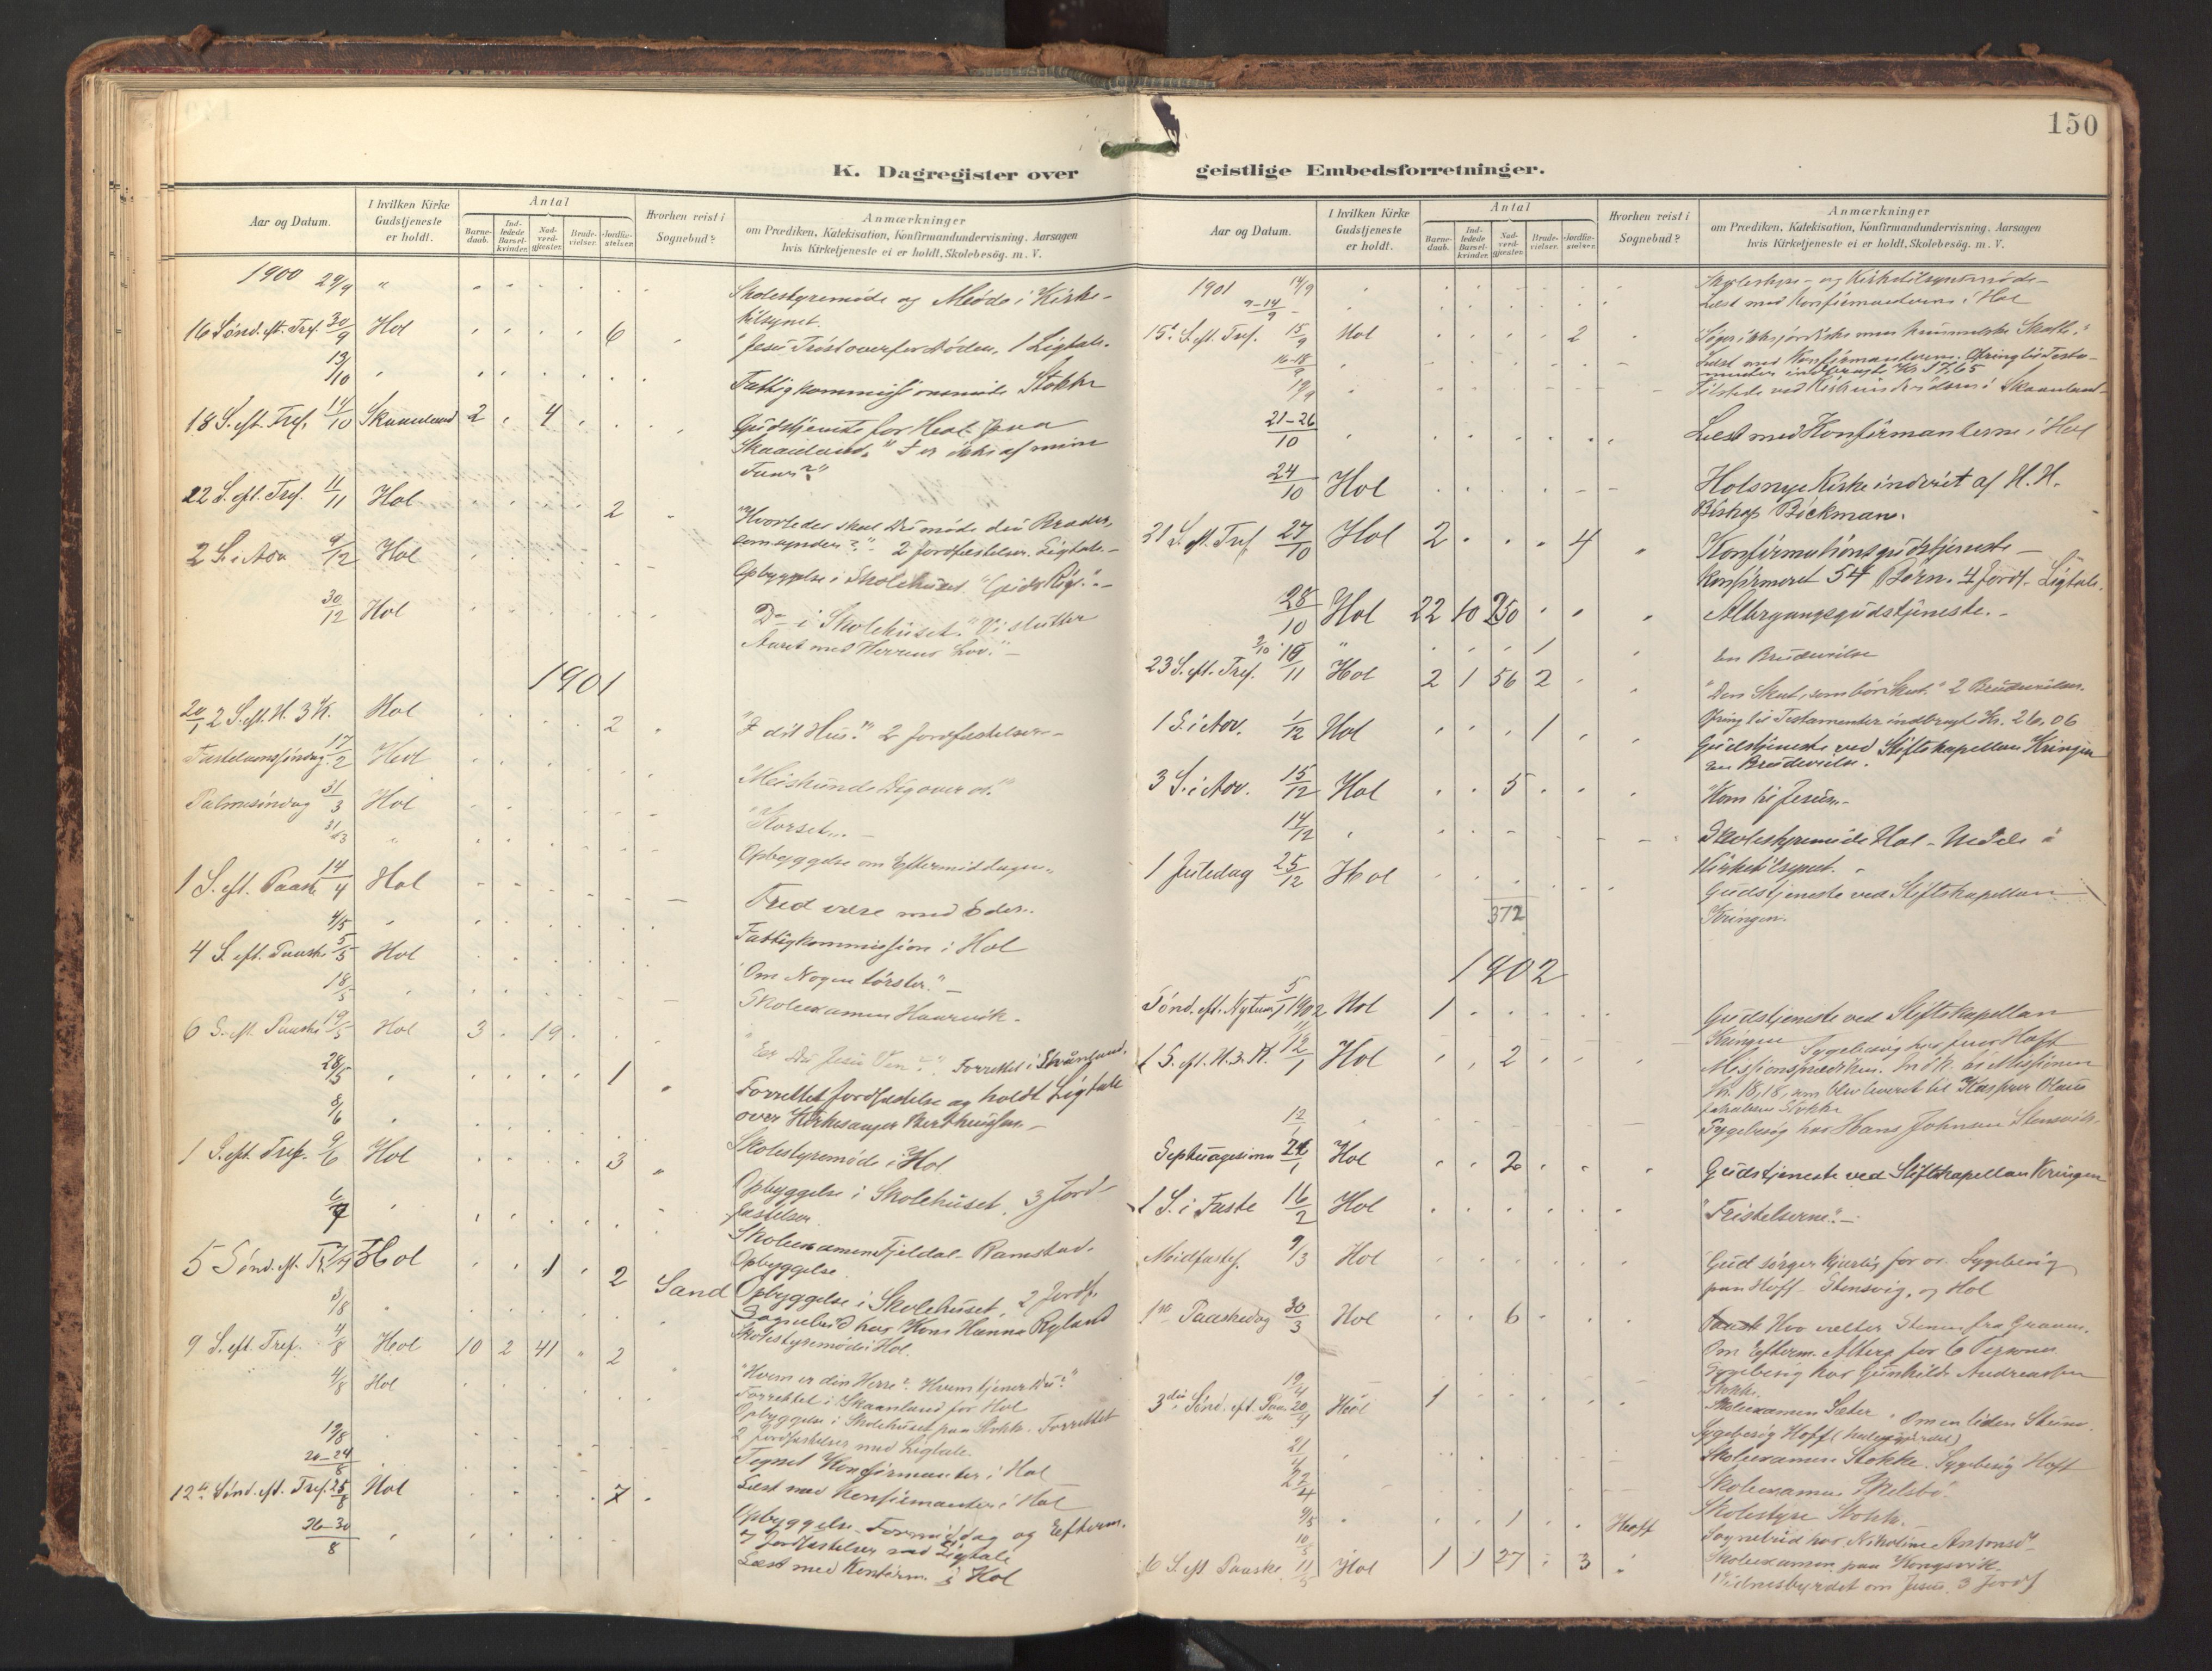 150
K. Dagregister over geistlige Embedsforretninger.
Aar og Datum.
I hvilken Kirke Gudstjeneste er holdt.
Antal
Barnedaab.
Indledede Barselkvinder.
Nadverdgjester.
Brudevielser.
Jordfæstelser.
Hvorhen reist i Sognebud?
Anmærkninger
om Prædiken, Katekisation, Konfirmandundervisning. Aarsagen
hvis Kirketjeneste ei er holdt. Skolebesög. m. V.
1900 29/9 " Skolestyremøde og Møde i Kirke-
tilsynet.
16 Sønd. eft. Tref. 30/9 Hol 6 "Jesu Trøst overfor Døden, 1 Ligtale.
13/10 " Fattigkommissionsmøde Stokke
18 S. eft. Tref. 14/10 Skaanland 2 4 Gudstjeneste for Hol paa
Skaanland.
22 S. eft. Tref. 11/11 Hol 2 "Hvorledes skal Du møde din Broder,
som synder?" 2 Jordfæstelser. Ligtale.
2 S. i Adv 9/12 Hol Opbyggelse i Skolehuset. "Guds Rige."
30/12 Hol Do i Skolehuset. "Vi slutter
Aaret med Herrens Lov."
1901
20/1 2 S. eft. H. 3 K. Hol 2 "I dit Hus." 2 Jordfæstelser
Fastelavnssøndag 17/2 Hol "Miskunde Dig over os."
Palmesøndag 31/3 Hol "Korset"
31/3 " Opbyggelse om Eftermiddagen
1 S. eft. Paaske 14/4 Hol Fred være med Eder.
4/5 " Fattigkommission i Hol
4 S. eft. Paaske 5/5 Hol "Om Nogen tørster."
18/5 " Skoleexamen Haarvik.
6 S. eft. Paaske 19/5 Hol 3 19 "Er Du Jesu Ven?" Forrettet i Skaanland.
28/5 " 1 Forrettet Jordfæstelse og holdt Ligtale
over Kirkesanger Bertheussen
8/6 " Skolestyremøde i Hol
1 S. eft. Tref. 9/6 Hol 3 Opbyggelse i Skolehuset. 3 Jord-
fæstelser
" Skoleexamen Fjeldal - Ramstad.
Opbyggelse
5 Sønd. eft. Tr. 7/7 Hol 1 2 Sand Opbyggelse i Skolehuset, 2 Jordf.
Sognebud hos Kone Hanna Ryland
3/8 " Skolestyremøde i Hol.
9 S. eft. Tref. 4/8 Hol 10 2 41 2 "Hvem er din Herre? Hvem tjener Du?"
Forrettet i Skaanland for Hol
4/8 Hol Opbyggelse i Skolehuset paa Stokke. Forrettet
2 Jordfæstelser med Ligtale.
19/8 Tegnet Konfirmanter i Hol
20-24/8 Læst med Konfirmanter i Hol
12te Sønd. eft. Tref. 25/8 Hol 7 Opbyggelse Formiddag og Efterm.
7 Jordfæstelser med Ligtale
26-30/8 " Læst med Konfirm. i Hol
Aar og Datum.
I hvilken Kirke Gudstjeneste er holdt.
Antal
Barnedaab.
Indledede Barselkvinder.
Nadverdgjester.
Brudevielser.
Jordfæstelser.
Hvorhen reist i Sognebud?
Anmærkninger
om Prædiken, Katekisation, Konfirmandundervisning. Aarsagen
hvis Kirketjeneste ei er holdt. Skolebesög. m. V.
1901 14/9 Skolestyre- og Kirketilsynsmøde
9-14/9 Læst med Konfirmanterne i Hol
15de S. eft. Tref. 15/9 Hol 2 "Søger ikke jordiske men himmelske Skatte."
16-18/9 Læst med Konfirmanterne. Ofring til Testa-
menter indbragte Kr
19/9 Tilstede ved Kirkeindvielsen i Skaanland
21-26/10 Læst med Konfirmanterne i Hol
24/10 Hol Hols nye Kirke indviet af H. H.
Biskop Bøckman.
21 S. eft. Tref 27/10 Hol 2 4 Konfirmationsgudstjeneste
konfirmeret 54 Børn. 4 Jordf. Ligtale.
28/10 Hol 22 10 250 Altergangsgudstjeneste.
" 1 En Brudevielse
23 S. eft. Tref. 10/11 Hol 2 1 56 2 "Den Skat, som bør Skat." 2 Brudevielser.
Ofring til Testamenter indbragt Kr. 26,06
1 S. i Adv. 1/12 Hol 1 Gudstjeneste ved Stiftskapellan Kringen
En Brudevielse.
3 S. i Adv. 15/12 Hol 5 "Kom til Jesum
14/12 Skolestyremøde Hol - Møde i
Kirketilsynet.
1 Juledag 25/12 Hol Gudstjeneste ved Stiftskapellan
Kringen.
372
1902
Sønd. eft. Nytaar 5/1 1902 Hol 1 Gudstjeneste ved Stiftskapellan
Kringen
11/1 Sygebesøg hos paa Hoff
1 S. eft. H. 3. K. 12/1 Hol 2 Missionsprædiken. Indk. til Missionen
Kr. 18,18, som blev leveret til Kasserer Olaus
Jakobsen Stokke
12/1 Sygebesøg hos Hans Johnsen Stensvik
Septuagesima 26/1 Hol 2 Gudstjeneste ved Stiftskapellan Kringen
1 S. i Faste 16/2 Hol "Fristelserne."
Midfaste 9/3 Hol Gud sørger kjærlig for os. Sygebesøg
paa Hoff - Stensvig, og Hol
1ste Paaskedag 30/3 Hol 6 Hvo vælter Stenen fra Graven.
Om Efterm. Alterg. for 6 Personer
Sygebesøg hos Gunhilde Andreassen
Stokke.
19/4 Skoleexamen Sæter.
3die Sønd. eft. Paaske 20/4 Hol 1 Om en liden Stund.
Sygebesøg Hoff
21/4 " Skoleexamen Stokke. Sygebesøg Hoff
22/4 Skoleexamen
9/5 " 1 Hoff Skolestyre Stokke.
Sognebud hos Nikoline Antonsd
10/5 Skoleexamen paa Kongsvik
6 S. eft. Paaske 11/5 Hol 1 1 27 3 Vidnesbyrdet om Jesus. 3 Jordf